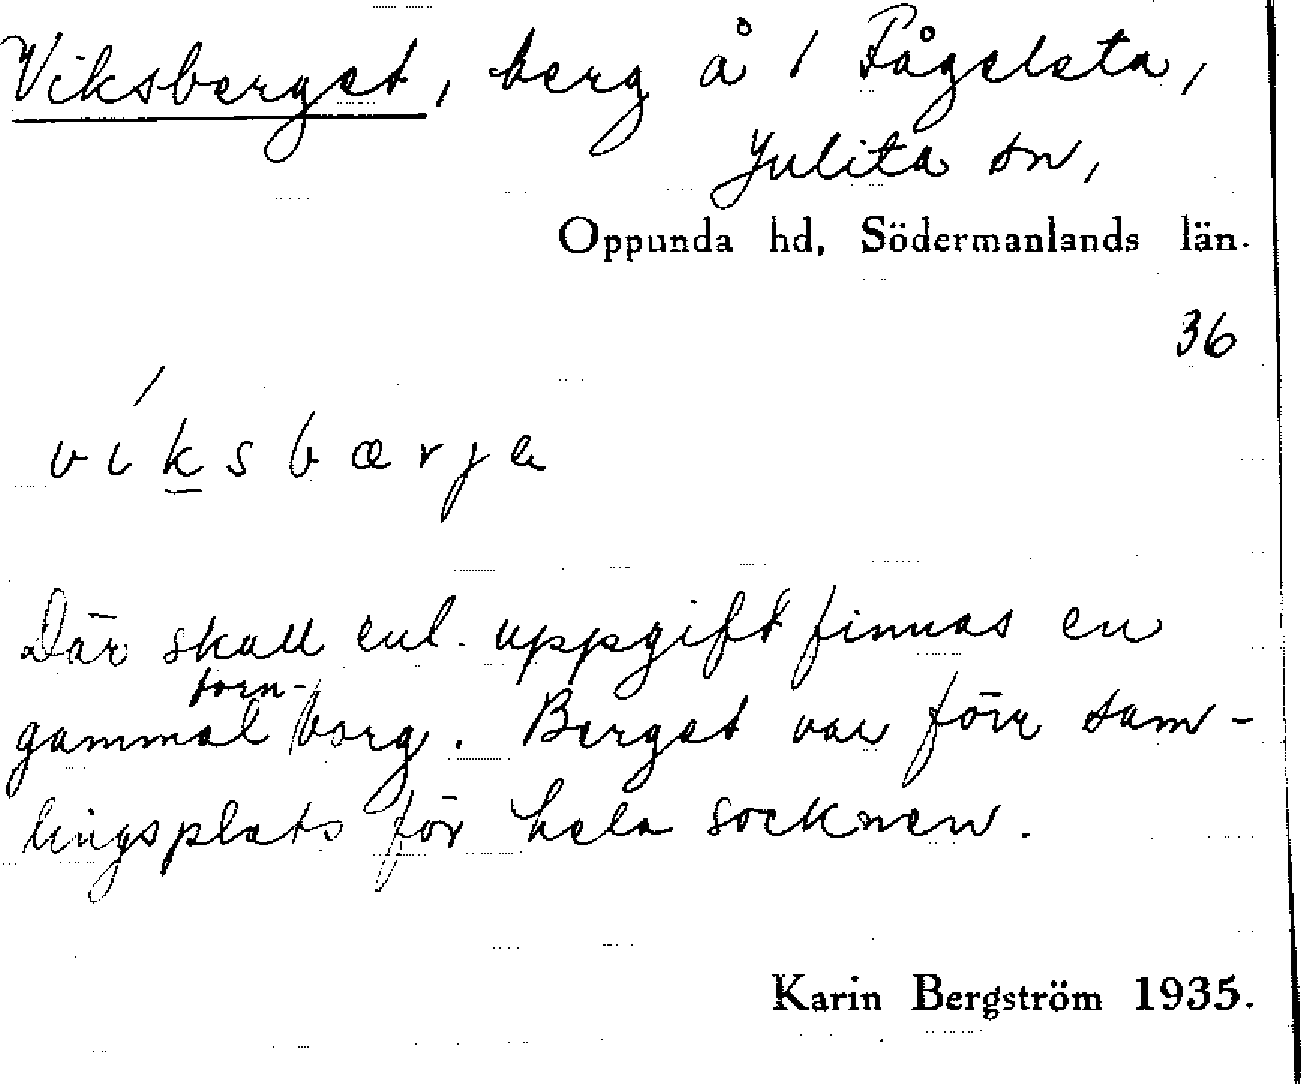 Viksberget, berg å 1 Fågelsta,
Julita sn,
Oppunda hd, Södermanlands län.
36
víksbærja
Där skall enl. uppgift finnas en
gammal fornborg. Berget var förr sam-
lingsplats för hela socknen.
Karin Bergström 1935.